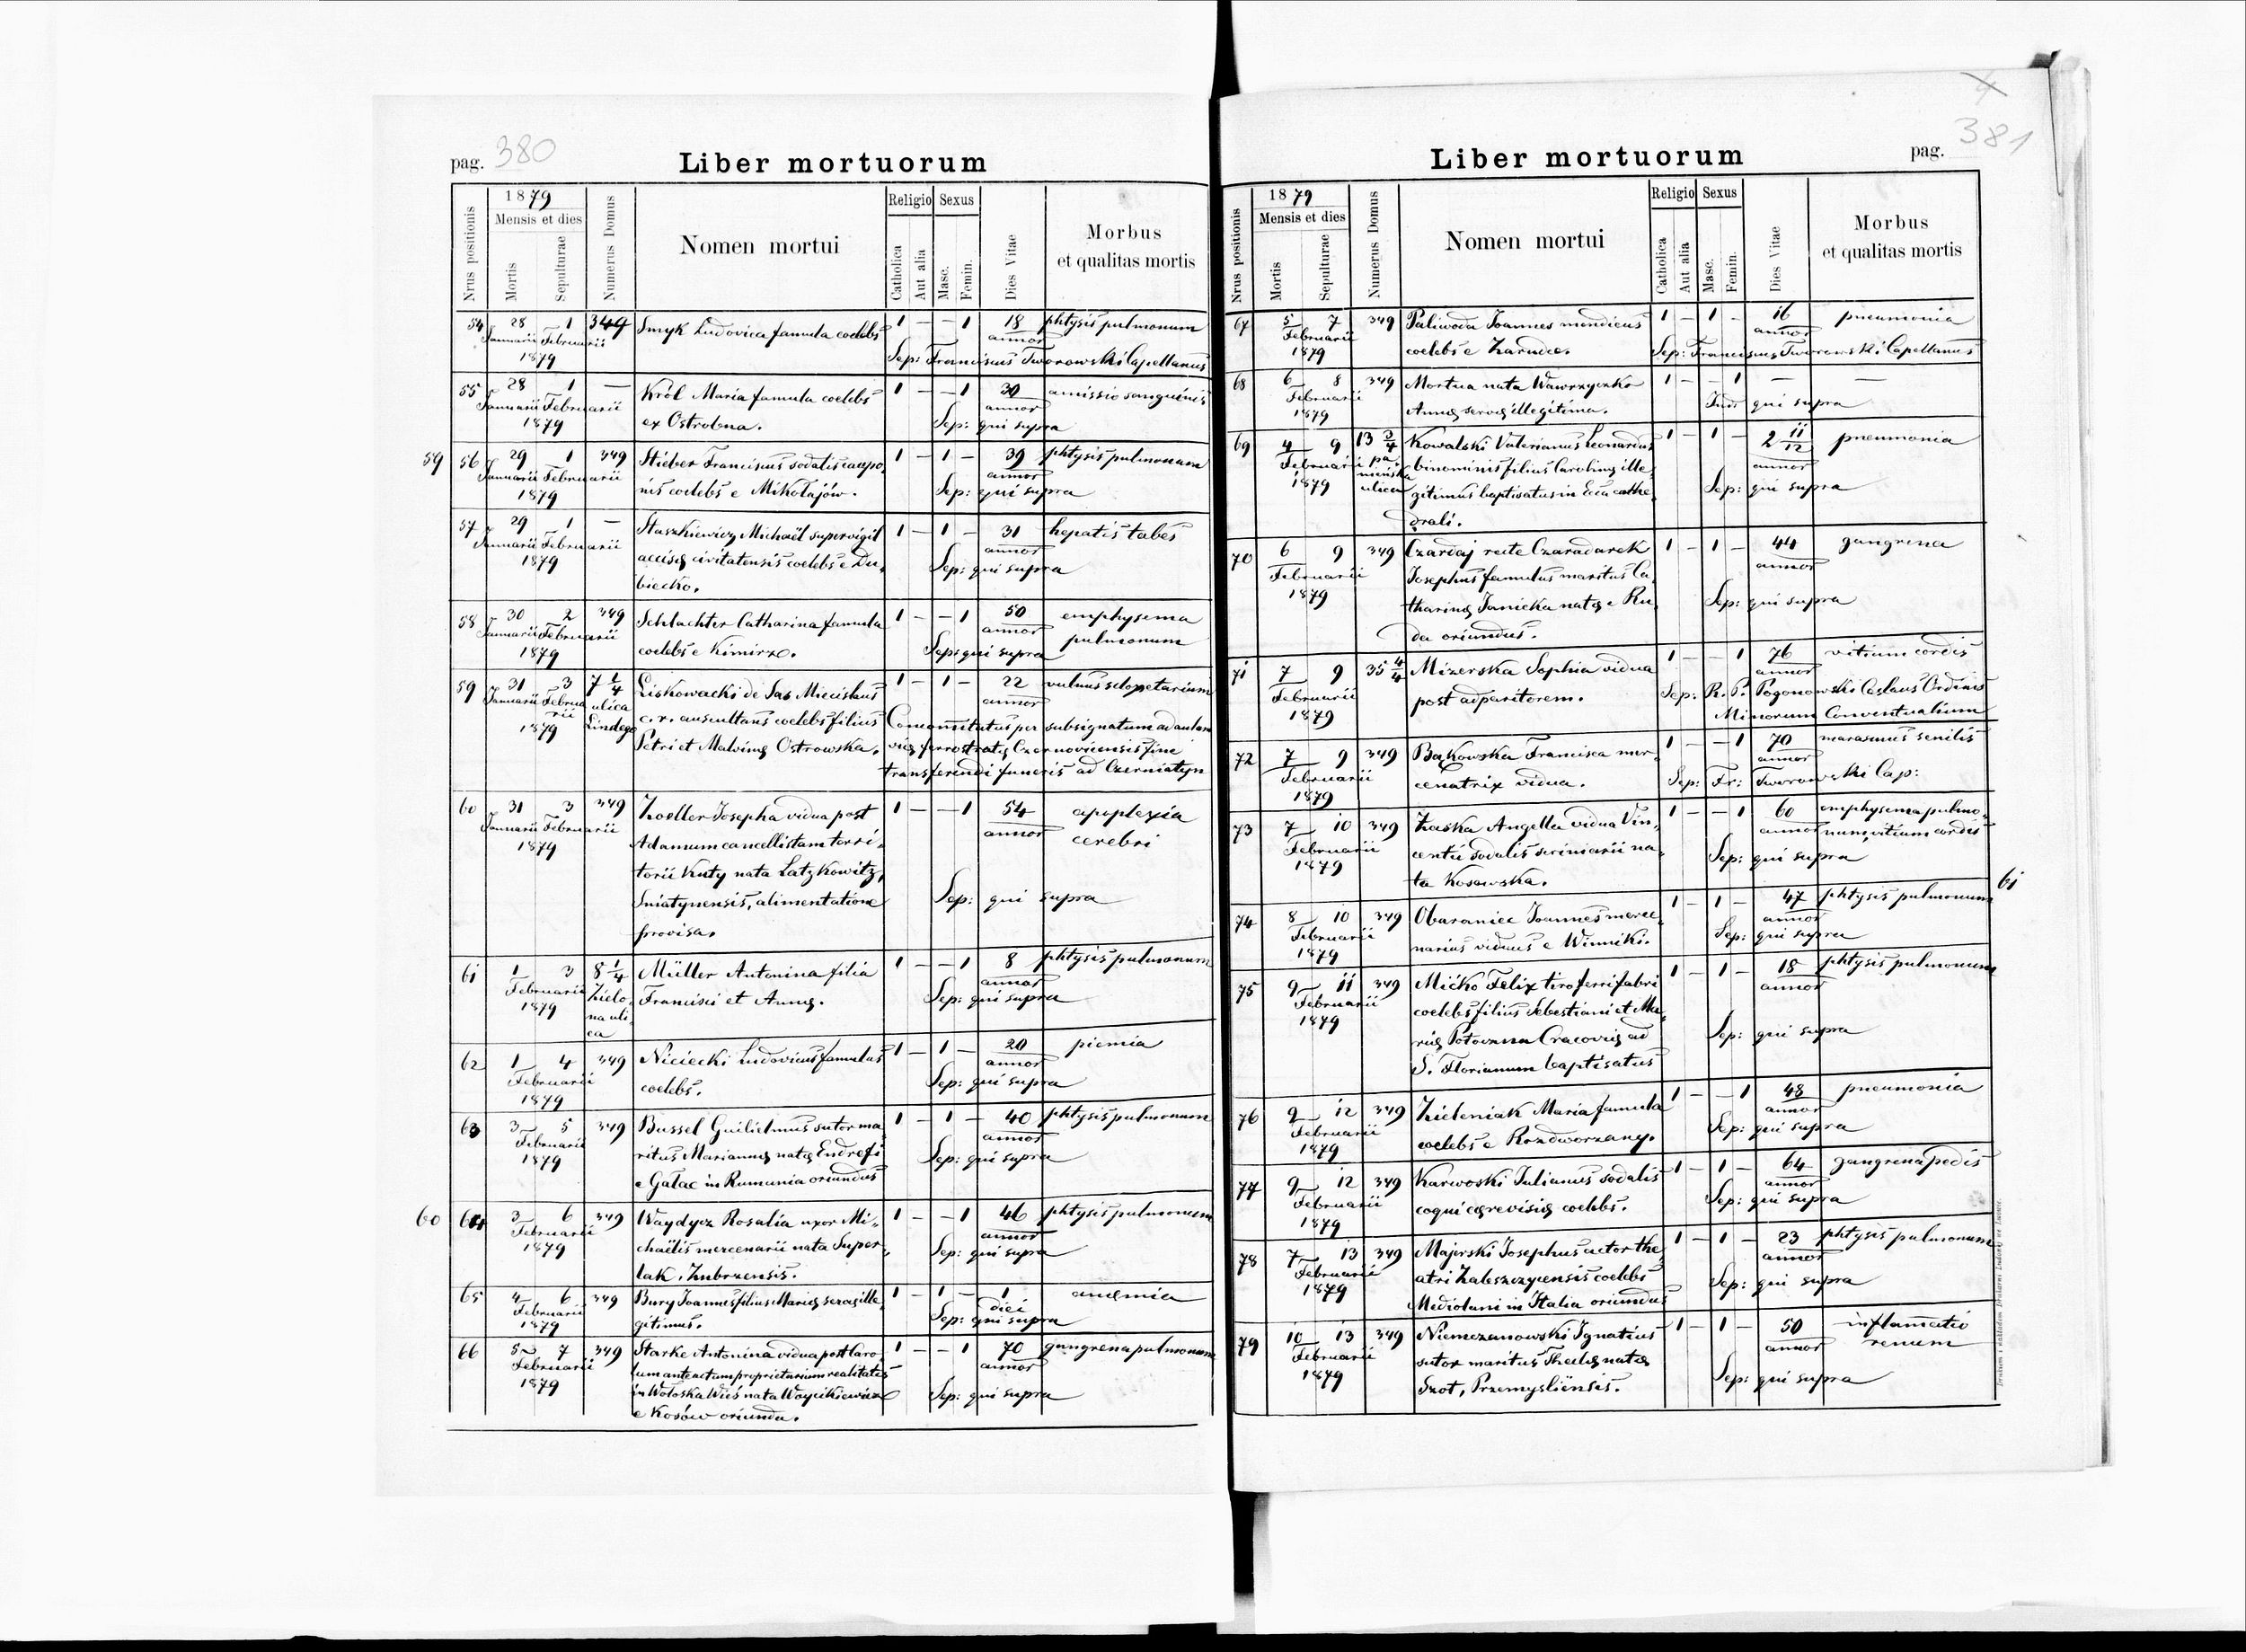 380
pag.
Liber mortuorum
1879
Religio Sexus
Mensis et dies
Nrus positionis
Mortis
Sepulturae
Numerus Domus
Nomen mortui
Catholica
Aut alia
Masc.
Femin.
Dies Vitae
Morbus
et qualitas mortis
54 28 1 349 Smyk Ludovica famula coelebs 1 — — 1 18 phtysis pulmonum
Januarii Februarii annor
1879 Sep: Franciscus Tworowski Capellanus
55 28 1 — Król Maria famula coelebs 1 — — 1 30 amissio sanguinis
Januarii Februarii ex Ostrobna. annor
1879 Sep: qui supra
59 56 29 1 349 Stieber Franciscus sodalis caupo- 1 — 1 — 39 phtysis pulmonum
Januarii Februarii nis coelebs e Mikołajów. annor
1879 Sep: qui supra
57 29 1 — Staszkiewicz Michaël supervigil 1 — 1 — 31 hepatis tabes
Januarii Februarii accisę civitatensis coelebs e Du- annor
1879 biecko. Sep: qui supra
58 30 2 349 Schlachter Catharina famula 1 — — 1 50 emphysema
Januarii Februarii coelebs e Kimirz. annor pulmonum
1879 Sep: qui supra
59 31 3 7 1/4 Liskowacki de Sas Miecislaus 1 — 1 — 22 vulnus sclopetarium
Januarii Februarii ulica c.r. auscultans coelebs filius annor
1879 Lindego Petri et Malvinę Ostrowska. Concomitatus per subsignatum ad aulam
vię ferrostratę Czernoviensis fine
transferendi funeris ad Czerniatyn
60 31 3 349 Zoeller Josepha vidua post 1 — — 1 54 apoplexia
Januarii Februarii Adamum cancellistam terri- annor cerebri
1879 torii Kuty nata Latzkowitz,
Sniatynensis, alimentatione Sep: qui supra
provisa.
61 1 3 8 1/4 Müller Antonina filia 1 — — 1 8 phtysis pulmonum
Februarii Zielo- Francisci et Annę. annor
1879 na uli- Sep: qui supra
ca
62 1 4 349 Niciecki Ludovicus famulus 1 — 1 — 20 piemia
Februarii coelebs. annor
1879 Sep: qui supra
63 3 5 349 Bussel Guilielmus sutor ma- 1 — 1 — 40 phtysis pulmonum
Februarii ritus Mariannę natę Endrefi annor
1879 e Galac in Rumunia oriundus Sep: qui supra
60 64 3 6 349 Waydycz Rosalia uxor Mi- 1 — — 1 46 phtysis pulmonum
Februarii chaëlis mercenarii nata Super- annor
1879 lak. Zubrzensis. Sep: qui supra
65 4 6 349 Bury Joannes filius Marię servę ille- 1 — 1 — 1 anemia
Februarii gitimus. diei
1879 Sep: qui supra
66 5 7 349 Starke Antonina vidua post Caro- 1 — — 1 70 gangrena pulmonum
Februarii lum anteactum proprietarium realitatis annor
1879 in Wołoska Wieś nata Woycikiewicz Sep: qui supra
e Kosów oriunda.
381
Liber mortuorum
pag.
1879
Religio Sexus
Mensis et dies
Nrus positionis
Mortis
Sepulturae
Numerus Domus
Nomen mortui
Catholica
Aut alia
Masc.
Femin.
Dies Vitae
Morbus
et qualitas mortis
67 5 7 349 Paliwoda Joannes mendicus 1 — 1 — 16 pneumonia
Februarii coelebs e Zarudce. annor
1879 Sep: Franciscus Tworowski Capellanus
68 6 8 349 Mortua nata Wawrzyczko 1 — — 1 — —
Februarii Annę servę illegitima.
1879 qui supra
69 4 9 13 3/4 Kowalski Valerianus Leonardus 1 — 1 — 2 11/12 pneumonia
Februarii binominis filius Carolinę ille- annor
1879 ulica gitimus baptisatus in Eccla cathe- Sep: qui supra
drali.
70 6 9 349 Czardaj recte Czaradarek 1 — 1 — 44 gangrena
Februarii Josephus famulus maritus Ca- annor
1879 tharinę Janicka natę e Ru- Sep: qui supra
da oriundus.
71 7 9 35 4/4 Mizerska Sophia vidua 1 — — 1 76 vitium cordis
Februarii post adparitorem. annor
1879 Sep: R. P. Pogonowski Ceslaus Ordinis
Minorum Conventualium
72 7 9 349 Bąkowska Francisca mer- 1 — — 1 70 marasmus senilis
Februarii cenatrix vidua. annor
1879 Sep: Fr: Tworowski Cap:
73 7 10 349 Zaska Angella vidua Vin- 1 — — 1 60 emphysema pulmo-
Februarii centii sodalis scriniarii na- annor num, vitium cordis
1879 ta Kosowska. Sep: qui supra
61
74 8 10 349 Obaraniec Joannes merce- 1 — 1 — 47 phtysis pulmonum
Februarii narius viduus e Winniki. annor
1879 Sep: qui supra
75 9 11 349 Mićko Felix tiro ferri fabri 1 — 1 — 18 phtysis pulmonum
Februarii coelebs filius Sebestiani et Ma- annor
1879 rię Potowna Cracovię ad Sep: qui supra
S. Florianum baptisatus
76 9 12 349 Zieleniak Maria famula 1 — — 1 48 pneumonia
Februarii coelebs e Rozdworzany. annor
1879 Sep: qui supra
77 9 12 349 Karwoski Julianus sodalis 1 — 1 — 64 gangrena pedis
Februarii coqui cęrevisię coelebs. annor
1879 Sep: qui supra
78 7 13 349 Majerski Josephus actor the- 1 — 1 — 23 phtysis pulmonum
Februarii atri Zaleszczycensis coelebs annor
1879 Mediolani in Italia oriundus Sep: qui supra
79 10 13 349 Niemczanowski Ignatius 1 — 1 — 50 inflamatio
Februarii sutor maritus Theclę natę annor renum
1879 Szot, Przemysliensis. Sep: qui supra